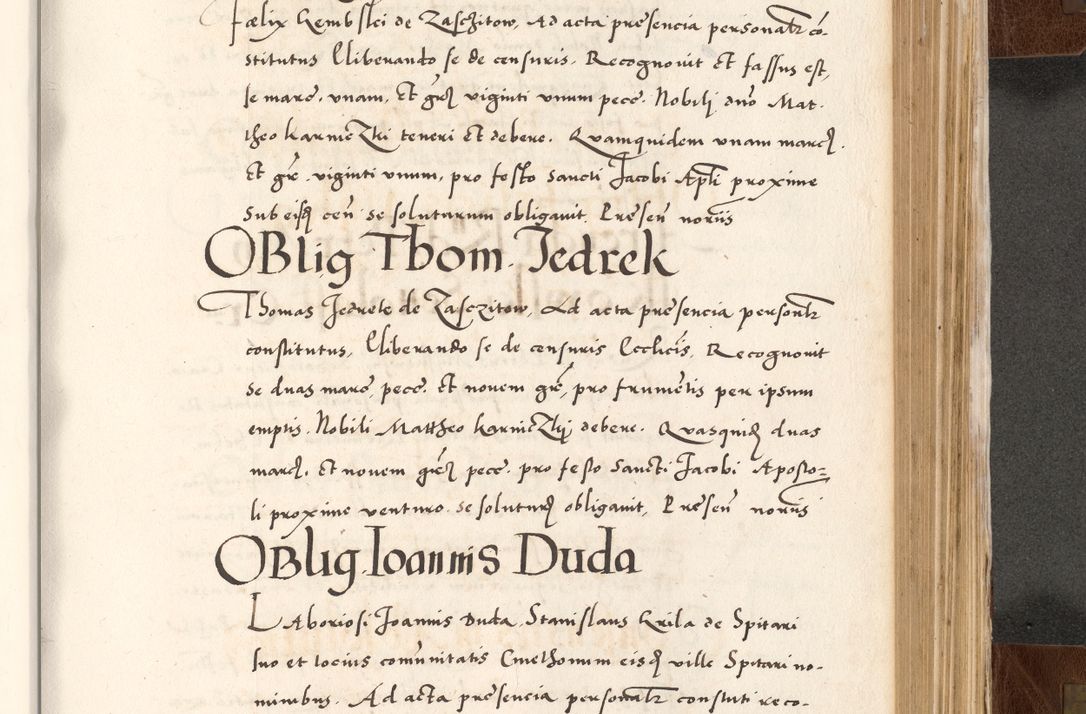 Fælix Gembssei de Zasczitow, Ad acta presencia personalr co-
stitutus Cliberando se de censuris. Recognouit Et fassus est,
se marc. vnam, Et gros viginti vnum pecc. Nobili dno Mat-
theo Karniczki teneri Et debere. Quamquidem vnam march.
Et gre viginti vnum, pro festo Sancti Jacobi Apli proxime
Sub eisq cen se soluturum obligauit. Presen noriis
OBlig Thom. Jedrek
Thomas Jedrek de Zasczitow, Ad acta presencia personlr
constitutus, Cliberando se de censuris Ecclicis, Recognouit
se duas marc. pecc. Et nouem gre, pro frumetis per ipsum
emptis, Nobili Mattheo Karniczkij debere. Quasquid duas
march. Et nouem gros pecc. pro festo Sancti Jacobi Aposto=
li proxime venturo se solutur obligauit, Presen noriis
OBlig Ioannis Duda
LAboriosi Joannis Duda, Stanislaus Krila de Spitari
suo et tocius comunitatis Cmethonum eisd ville Spitari no-
minibus. Ad acta presencia personalr constuti reco-